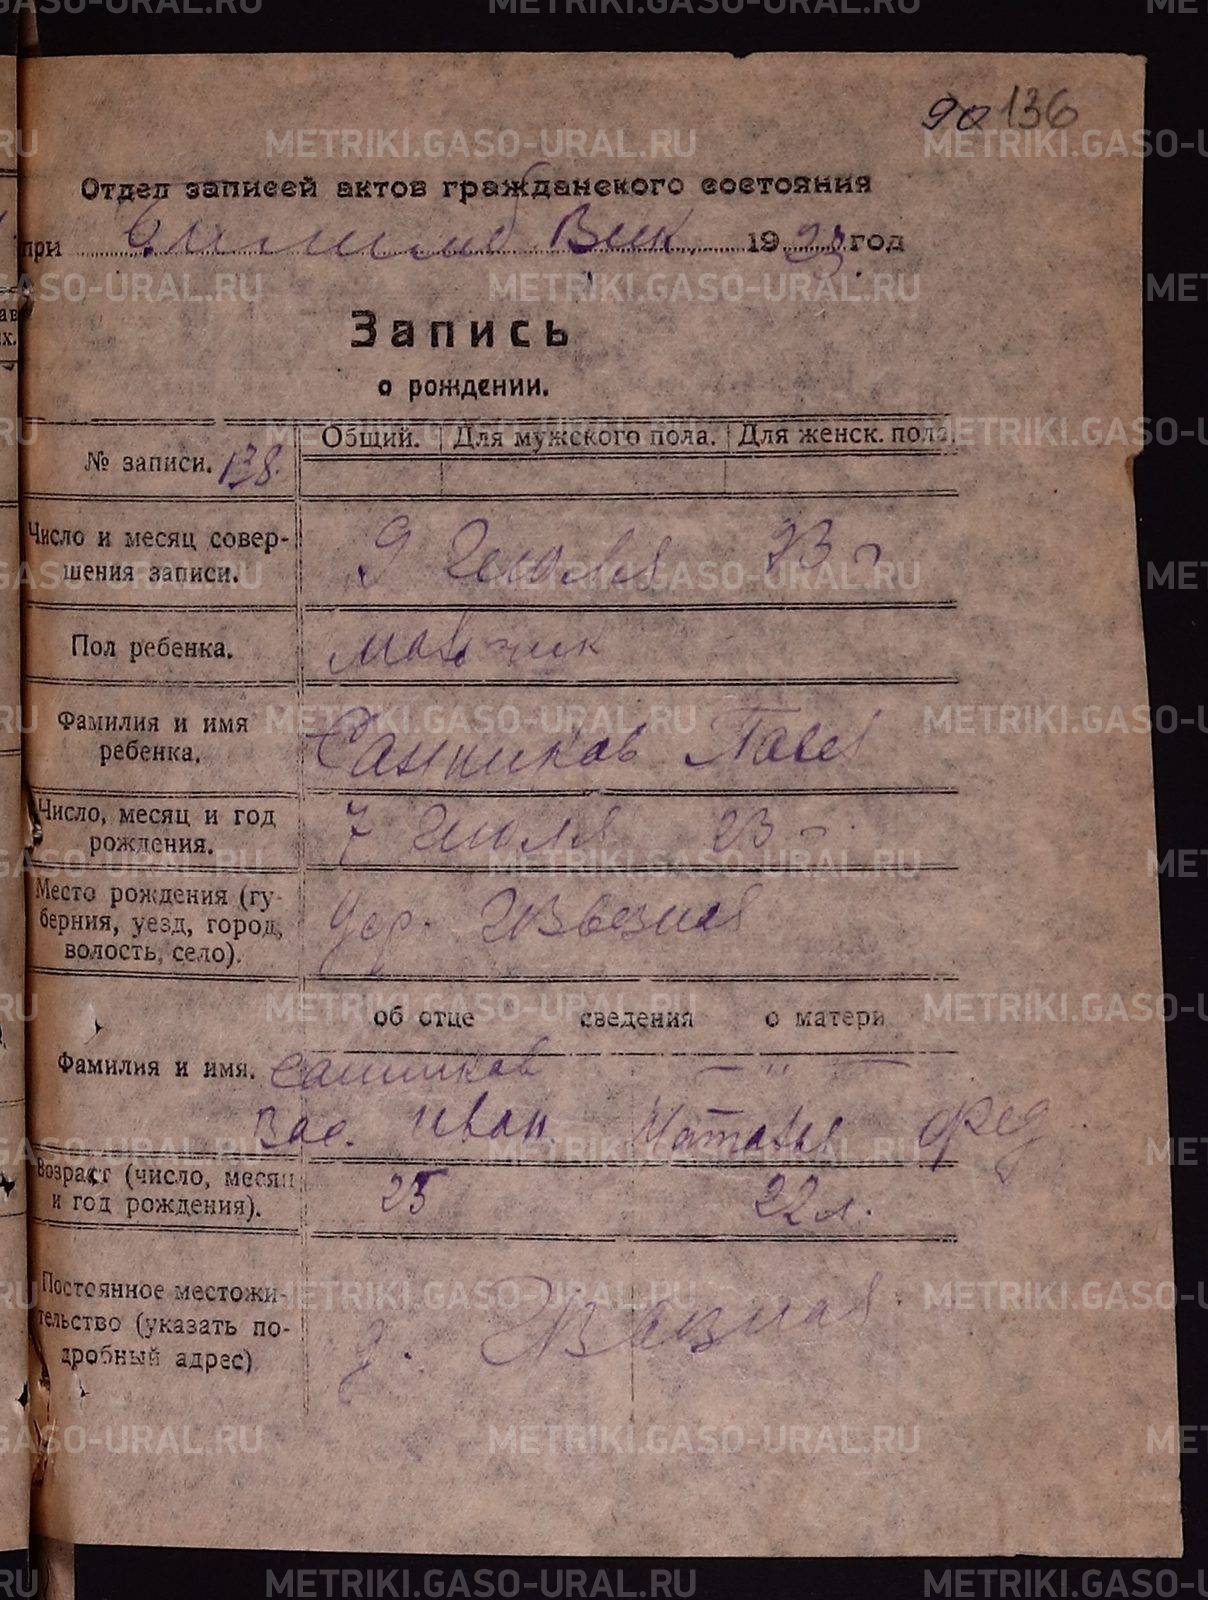 90 136
Отдел записей актов гражданского состояния
при Вик. 1923 год
Запись
о рождении.
№ записи. 138. Общий. Для мужского пола. Для женск. пола.
Число и месяц совер-
шения записи. 9 Июля 23 г
Пол ребенка. мальчик
Фамилия и имя
ребенка. Санников Павел
Число, месяц и год
рождения. 7 Июля 23 г.
Место рождения (гу-
берния, уезд, город,
волость, село). дер.
об отце сведения о матери
Фамилия и имя. Санников — „ —
Вас. Иван. Наталья Фед.
Возраст (число, месяц
и год рождения). 25 22 л.
Постоянное местожи-
тельство (указать по-
дробный адрес) д.
METRIKI.GASO-URAL.RU